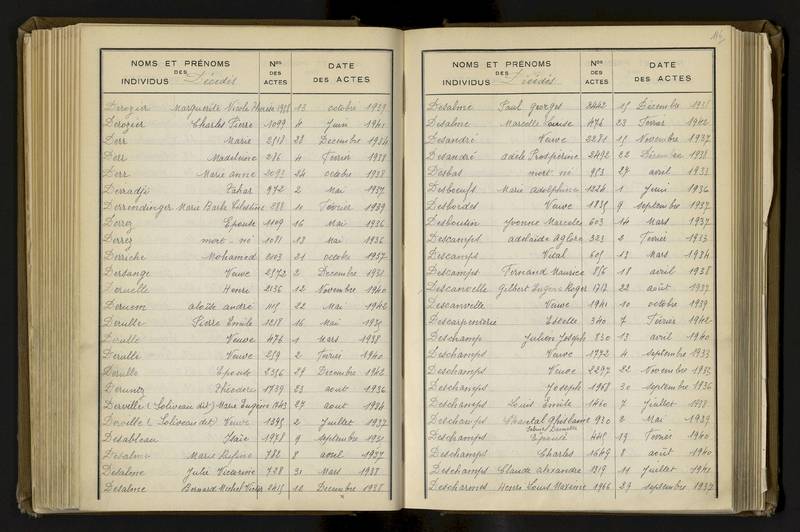 NOMS ET PRÉNOMS
DES
INDIVIDUS Décédés
Nos
DES
ACTES
DATE
DES ACTES
Derozier Marguerite Nicole 13 octobre 1939
Derozier Charles Pierre 1099 4 Juin 1941
Derr Marie 2518 28 Decembre 1934
Derr Madeleine 286 4 Fevrier 1938
Derr Marie anne 2093 24 octobre 1938
Derradji 972 2 Mai 1937
Derrendinger Marie Barbe Célestine 288 11 Février 1939
Derrez Epouse 1109 16 Mai 1936
Derrez mort-né 1081 13 Mai 1936
Derriche Mohamed 2103 21 octobre 1937
Dersange Veuve 2572 2 Decembre 1931
Deruelle Henri 2136 12 Novembre 1940
Deruem andré 1115 22 Mai 1942
Derulle Pierre Emile 1218 16 Mai
Derulle Veuve 476 1 Mars 1938
Derulle Veuve 259 2 Fevrier 1940
Derulle Epouse 2356 29 Decembre 1942
Deruntz Théodore 1739 23 aout 1936
Derville (Soliveau dit) Marie Eugène 1743 27 aout 1934
Derville (Soliveau dit) Veuve 1345 2 Juillet 1937
Desableau Isaïe 1978 9 septembre 1931
Desalme Marie Rufine 782 8 avril 1937
Desalme Julie Victorine 728 31 Mars 1938
Desalme Bernard Michel Victor 2415 10 Decembre 1938
116
NOMS ET PRÉNOMS
DES
INDIVIDUS Décédés
Nos
DES
ACTES
DATE
DES ACTES
Desalme Paul georges 2442 15 Décembre 1938
Desalme Marcelle Louise 476 23 Fevrier 1942
Desandré Veuve 2281 15 Novembre 1937
Desandré adele Prosperine 2492 22 Décembre 1938
Desbas mort-né 953 27 avril 1933
Desboeufs Marie adolphine 1224 1 Juin 1936
Desbordes Veuve 1835 9 septembre 1937
Desboutin Yvonne Marcelle 603 14 Mars 1937
Descamps adelaïde Aglaé 323 2 Fevrier 1933
Descamps Vital 605 13 Mars 1934
Descamps Fernand Maurice 856 18 avril 1938
Descanvelle Gilbert Eugene Roger 1717 22 août 1937
Descanvelle Veuve 1941 10 octobre 1939
Descarpentrie Estelle 340 7 Février 1942
Deschamp Julien Joseph 830 13 avril 1940
Deschamps Veuve 1772 4 septembre 1933
Deschamps Veuve 2297 22 Novembre
Deschamps Joseph 1968 30 septembre 1936
Deschamps Louis Emile 1460 7 Juillet 1938
Deschamps Chantal Ghislaine 930 2 Mai 1939
Deschamps Epouse 445 19 Fevrier 1940
Deschamps Charles 1649 8 août 1940
Deschamps Claude alexandre 1319 11 Juillet 1941
Descharmes Henri Louis Maxime 1966 29 septembre 1937